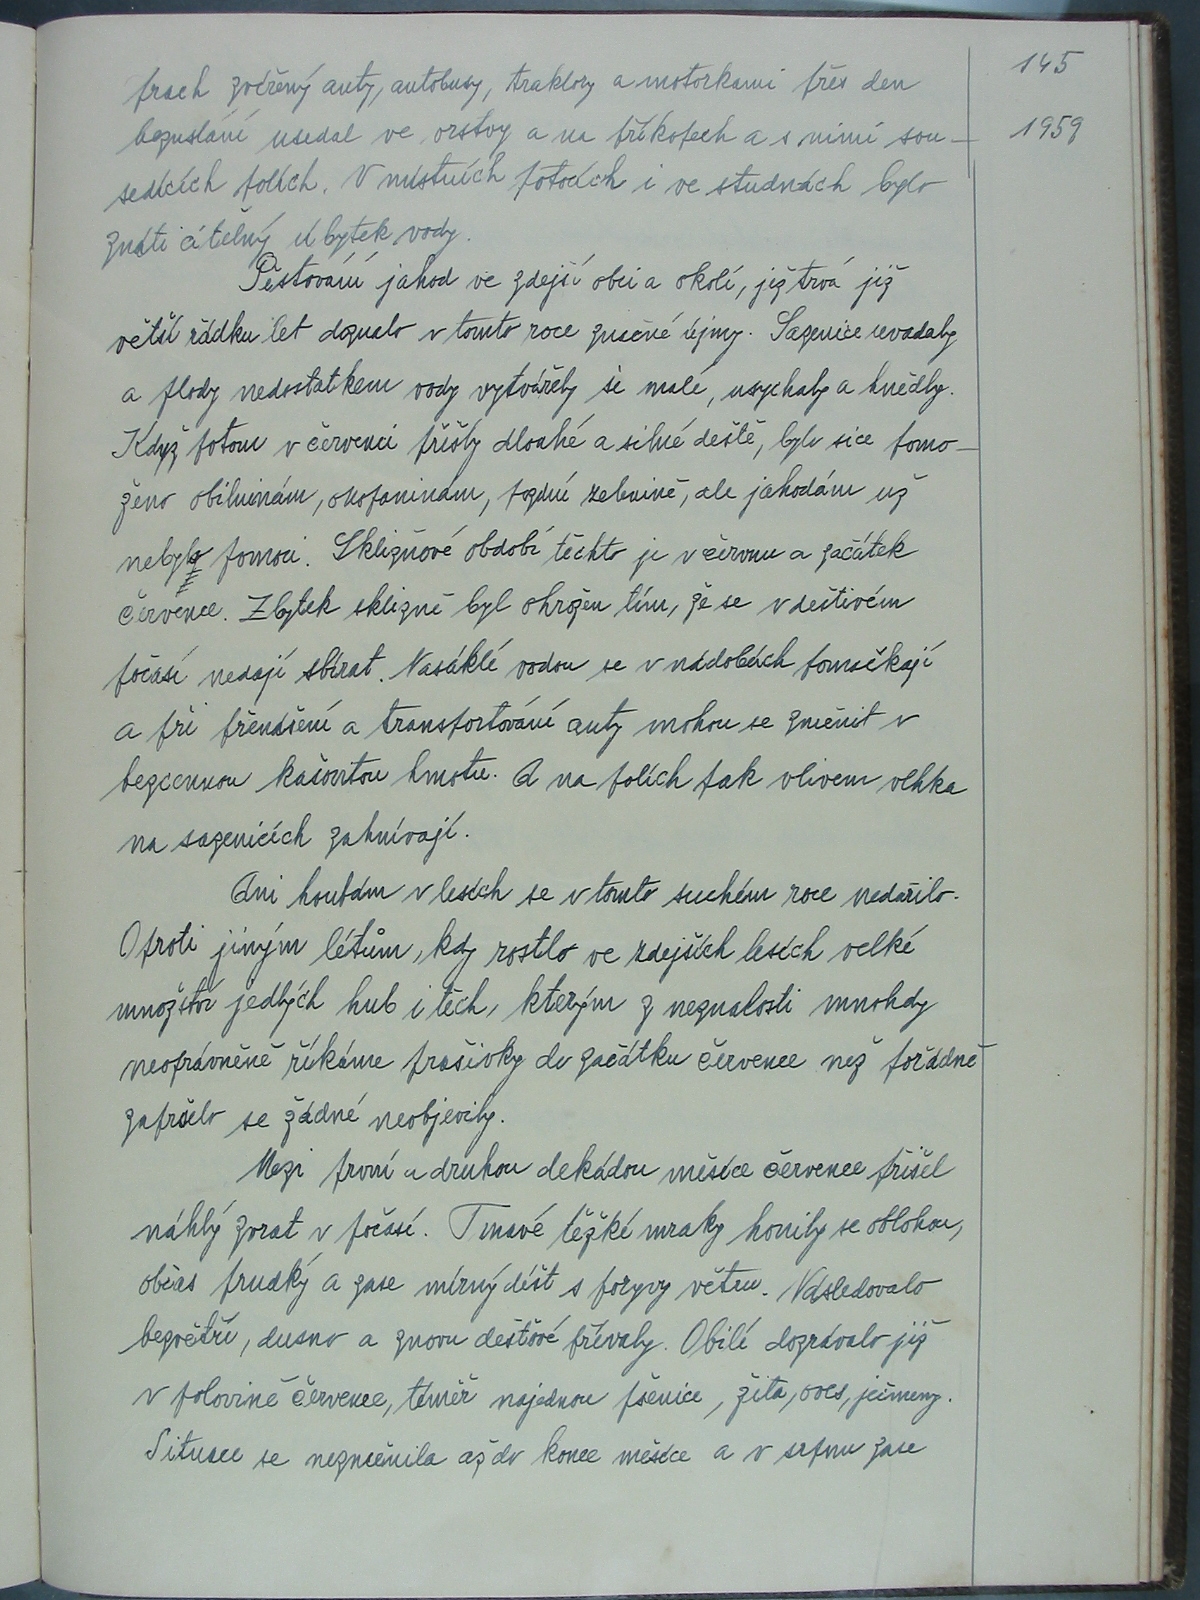 145
prach zvířený auty, autobusy, traktory a motorkami přes den
bezustání usedal ve vrstvy a na příkopech a s nimi sou-
1959
sedících polích. V místních potocích i ve studnách bylo
znáti citelný úbytek vody.
Pěstování jahod ve zdejší obci a okolí, jež trvá již
větší řádku let doznalo v tomto roce značné újmy. Sazenice uvadaly
a plody nedostatkem vody vytvářely se malé, usychaly a hnědly.
Když potom v červenci přišly dlouhé a silné deště, bylo sice pomo-
ženo obilninám, okopaninám, pozdní zelenině, ale jahodám už
nebylo pomoci. Sklizňové období těchto je v červnu a začátek
července. Zbytek sklizně byl ohrožen tím, že se v deštivém
počasí nedají sbírat. Nasáklé vodou se v nádobách pomačkají
a při přenášení a transportování auty mohou se změnit v
bezcennou kašovitou hmotu. A na polích pak vlivem vlhka
na sazenicích zahnívají.
Ani houbám v lesích se v tomto suchém roce nedařilo.
Oproti jiným létům, kdy rostlo ve zdejších lesích velké
množství jedlých hub i těch, kterým z neznalosti mnohdy
neoprávněně říkáme prašivky do začátku července než pořádně
zapršelo se žádné neobjevily.
Mezi první a druhou dekádou měsíce července přišel
náhlý zvrat v počasí. Tmavé těžké mraky honily se oblohou,
občas prudký a zase mírný déšt s poryvy větru. Následovalo
bezvětří, dusno a znovu dešťové přívaly. Obilí dozrávalo již
v polovině července, téměř najednou pšenice, žita, oves, ječmeny.
Situace se nezměnila až do konce měsíce a v srpnu zase